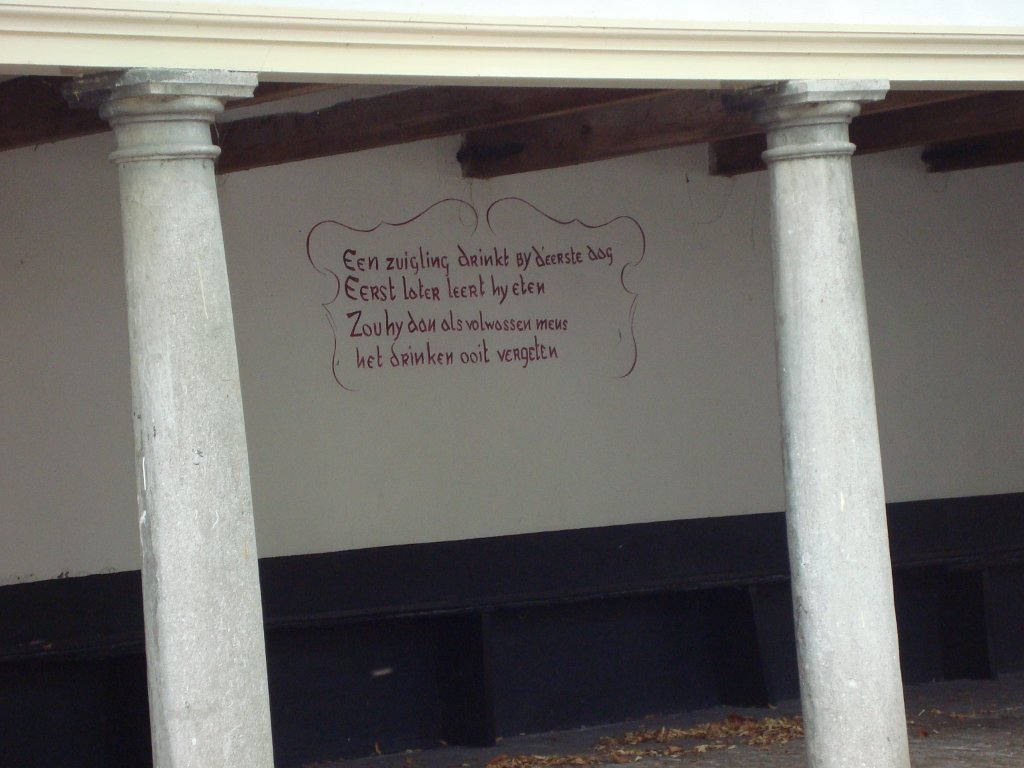 Een zuigling drinkt by d'eerste dag
Eerst later leert hy eten
Zou hy dan als volwassen mens
het drinken ooit vergeten